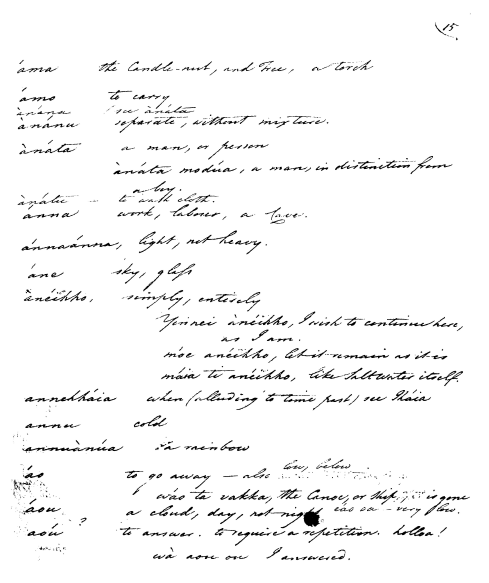 15
áma the Candle-nut, and Tree, a torch
ámo to carry
ànána see ànáta
ànanu separate, without mixture.
ànáta a man, or person
ànáta modúa, a man, in distinction from
a boy.
ànátu – to wash cloth.
anna work, labour, a
ánnaánna, light, not heavy.
áne sky, glass
ànéïkho, simply, entirely
Yinnei ànéïkho, I wish to continue here,
as I am.
móe anéïkho, let it remain as it is
máia te anéïkho, like Salt water itself.
annekháia when (alluding to time past) see Iháia
annu cold
annuànúa a rainbow
áo to go away – also low, below
wáo ta vakka, the Canoe, or Ship, is gone
áou a cloud, day, not night, – very low.
aoú ? to answer. to require a repetition. holloa!
wà aou ou I answered.